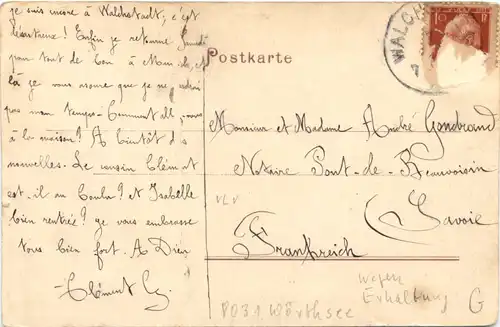 je suis encore à Walchstadt; c'est
désastreux! Enfin je retourne
pour tout de bon à
là je vous assure que je ne
pas mon temps. Comment allez vous
à la maison? A bientôt des
nouvelles. Le cousin Clément
est-il au Coulu? et Isabelle
bien rentrée? Je vous embrasse
tous bien fort. A Dieu
Clément
Postkarte
WALCH
10
Monsieur et Madame André Gondrand
Notaire Pont-de-Beauvoisin
Savoie
Frankreich
VLV
PO31 Wörthsee
wegen
Erhaltung
G